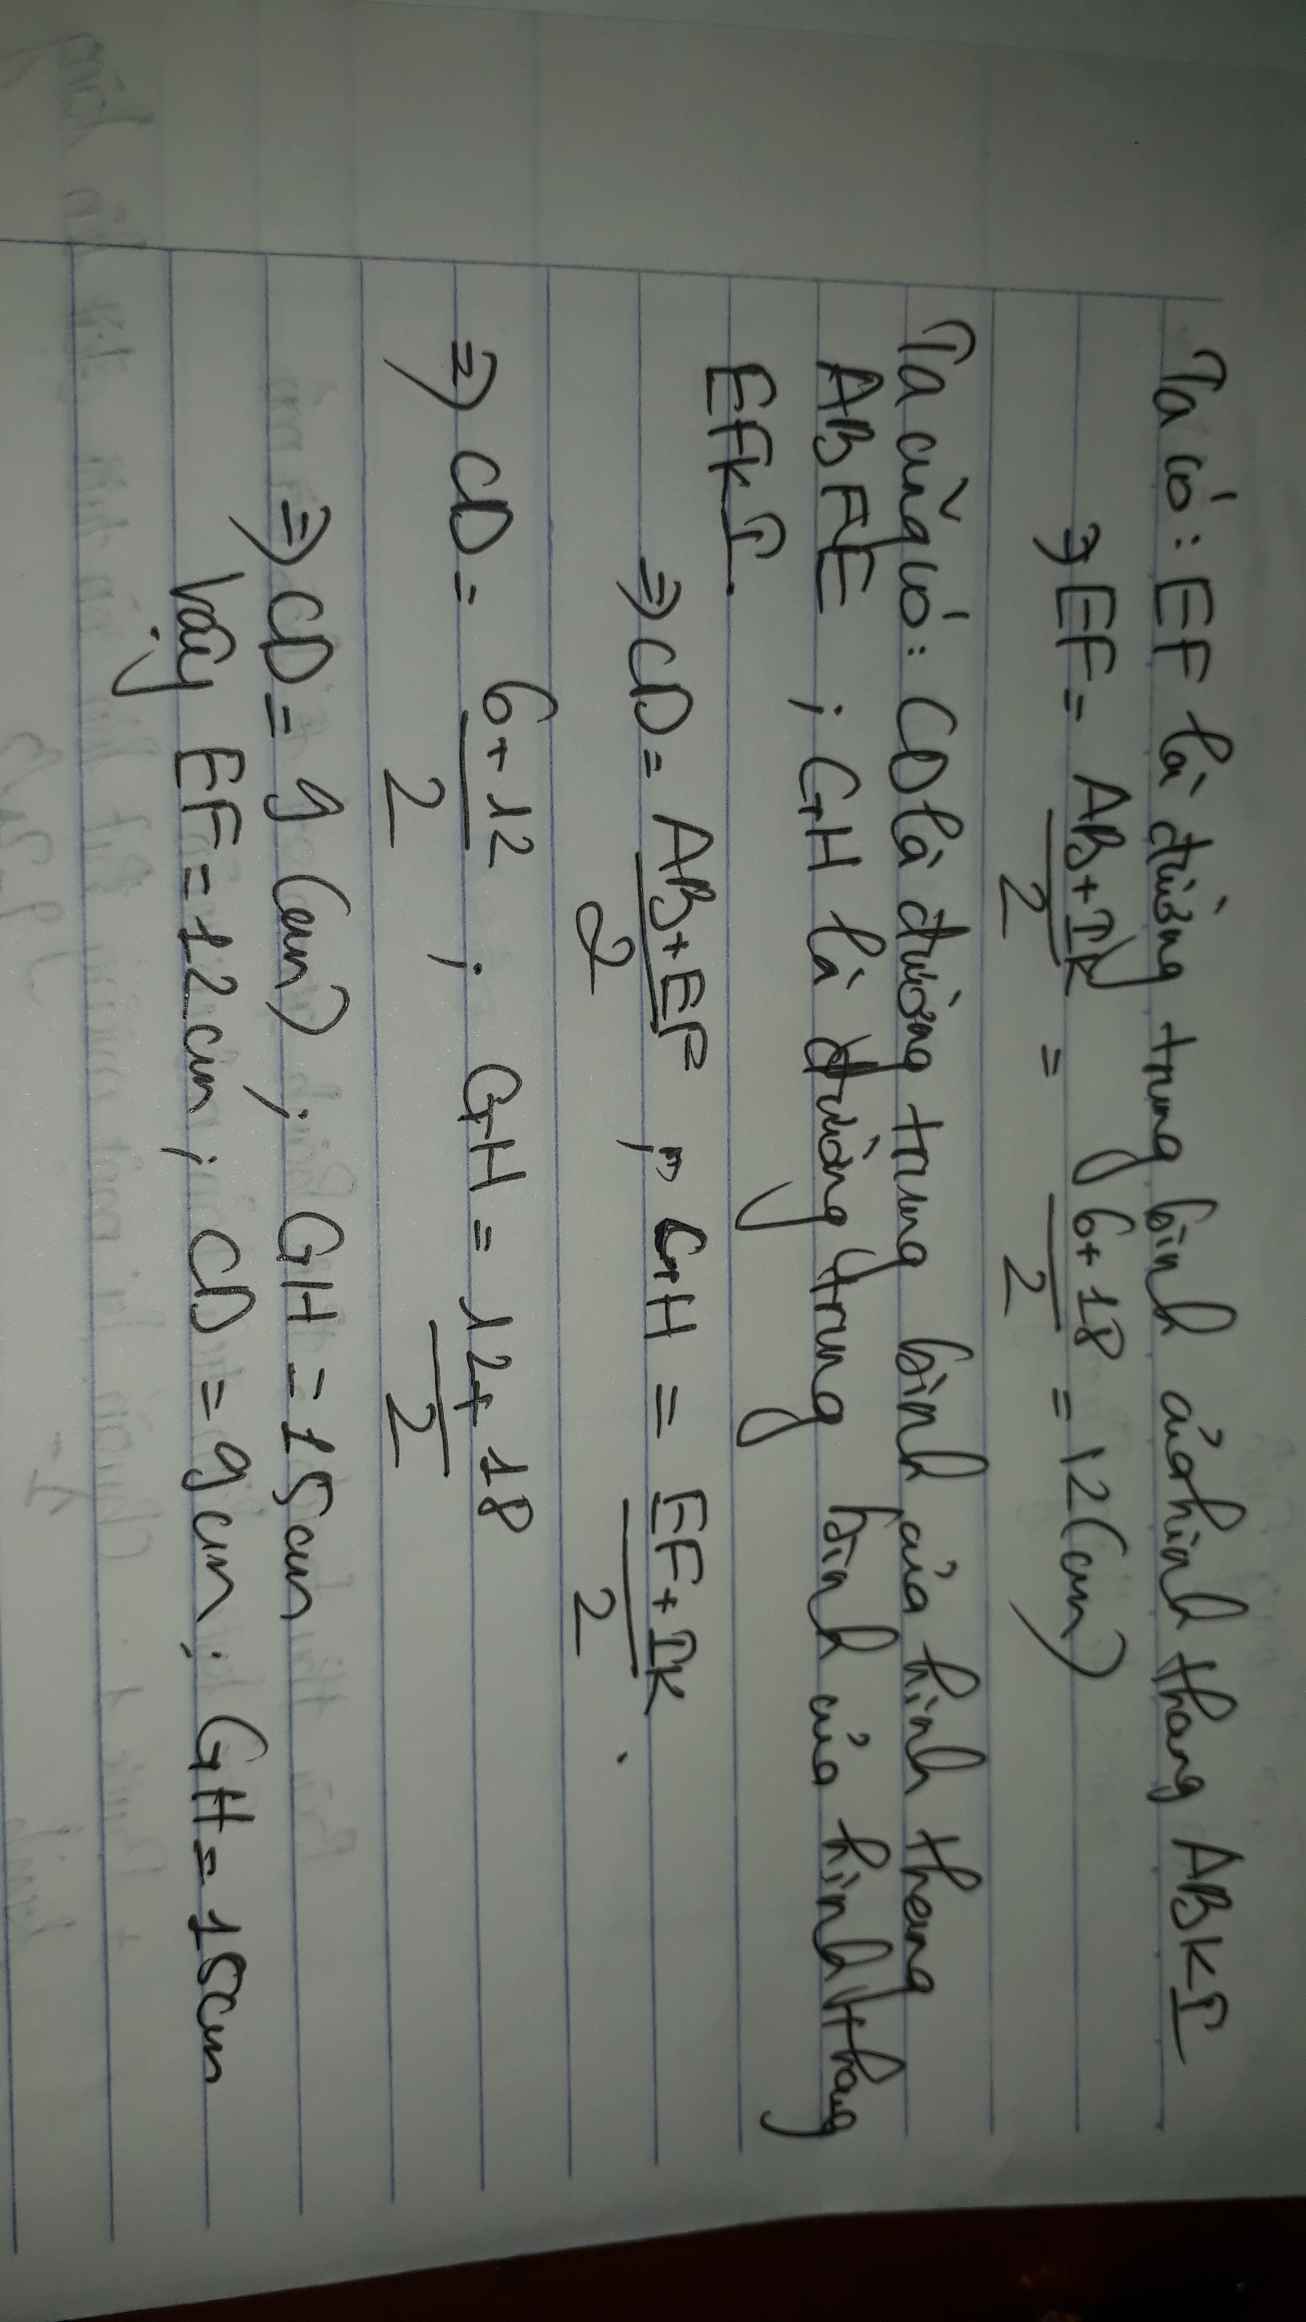 Ta có: EF là đường trung bình của hình thang ABKI
=> EF = AB+IK/2 = 6+18/2 = 12(cm)
Ta cũng có: CD là đường trung bình của hình thang
ABFE ; GH là đường trung bình của hình thang
EFKI.
=> CD = AB+EF/2 ; GH = EF+IK/2 .
=> CD = 6+12/2 ; GH = 12+18/2
=> CD = 9 (cm) ; GH = 15cm
Vậy EF = 12cm ; CD = 9cm ; GH = 15cm